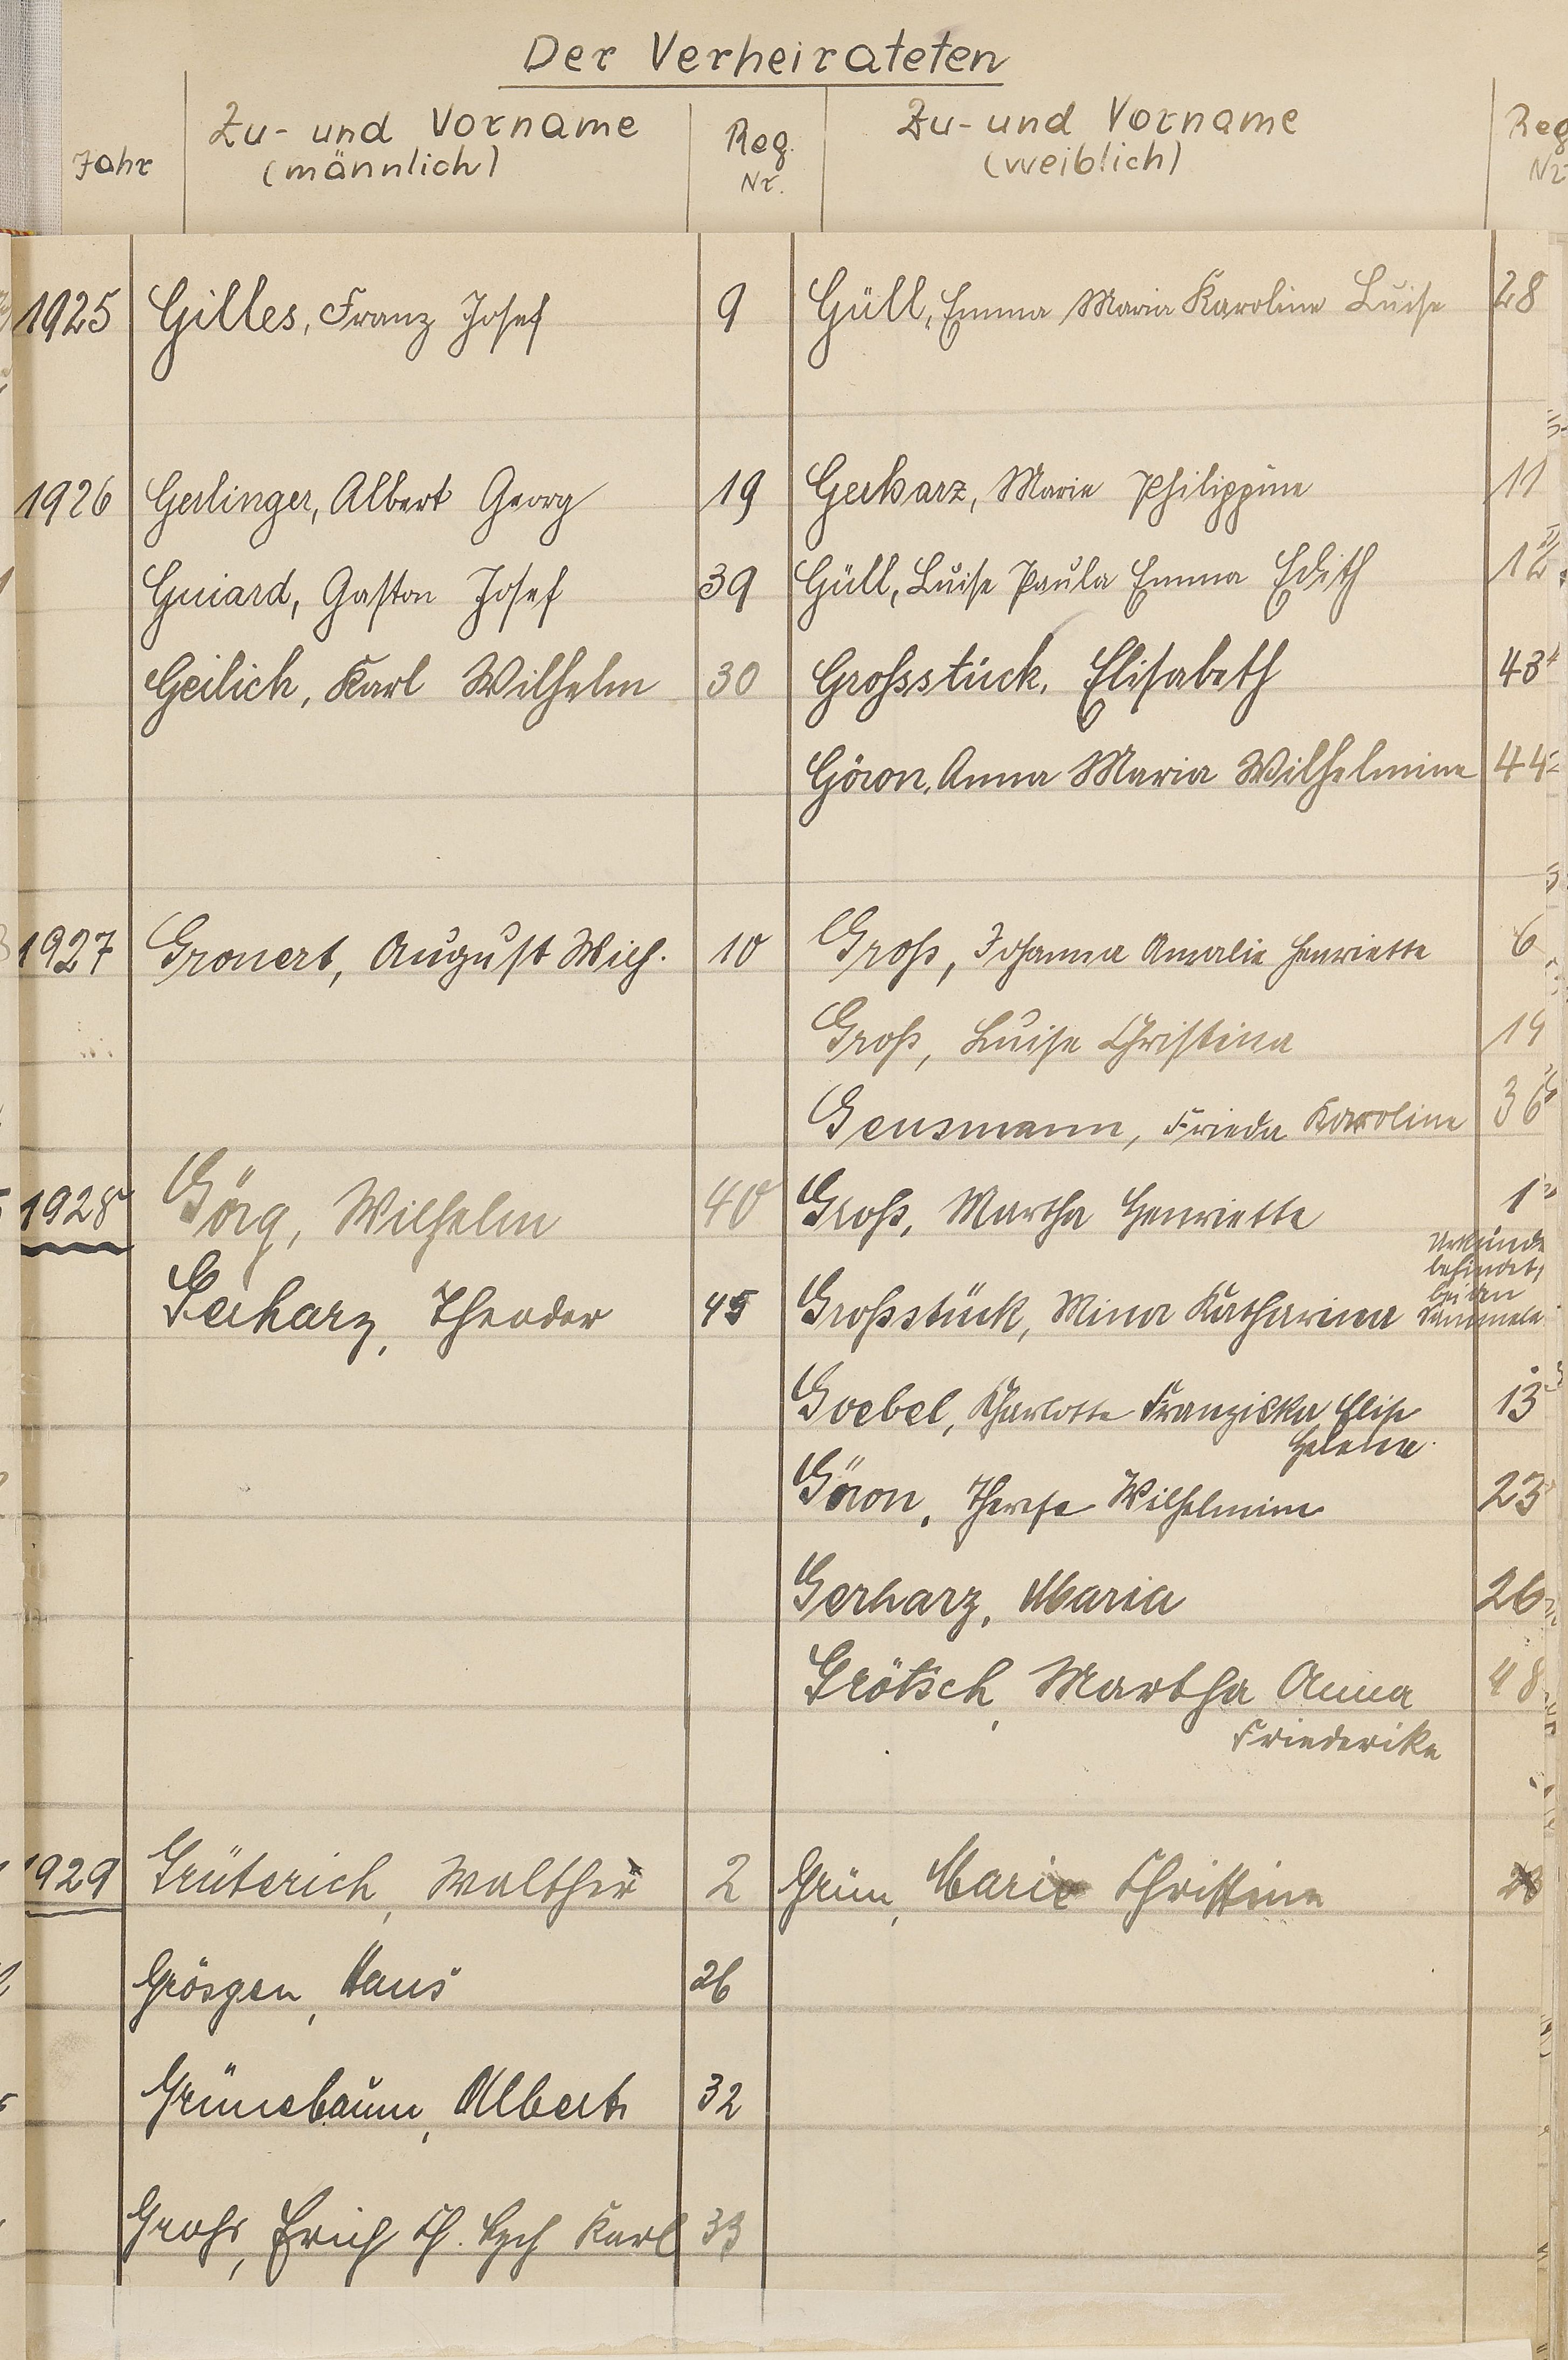 Der Verheirateten
Jahr Zu- und Vorname (männlich) Reg. Nr. Zu- und Vorname (weiblich) Reg Nr
1925 Gilles, Franz Josef 9 Güll, Emma Maria Karoline Luise 28
1926 Gerlinger, Albert Georg 19 Gerharz, Marie Philippine 11
Guiard, Gaston Josef 39 Güll, Luise Paula Emma Edith 12
Geilich, Karl Wilhelm 30 Grossstück, Elisabeth 43
Göron, Anna Maria Wilhelmine 44
1927 Gronert, August Wilh. 10 Groß, Johanna Amalie Henriette 6
Groß, Luise Christina 19
Gensmann, Frieda Karoline 36
1928 Görg, Wilhelm 40 Groß, Martha Henriette 1
Urkunde
befindet,
bei den
Gerharz, Theodor 45 Großstück, Mina Katharina
Goebel, Charlotte Franziska Elise 13
Helena.
Göron, Therese Wilhelmine 23
Gerharz, Maria 26
Grötsch, Martha Anna 48
Friederike
1929 Grüterich, Walther 2 Grün, Marie Christine
Grösgen, Hans 26
Grünebaum, Albert 32
Groß, Erich Karl 33